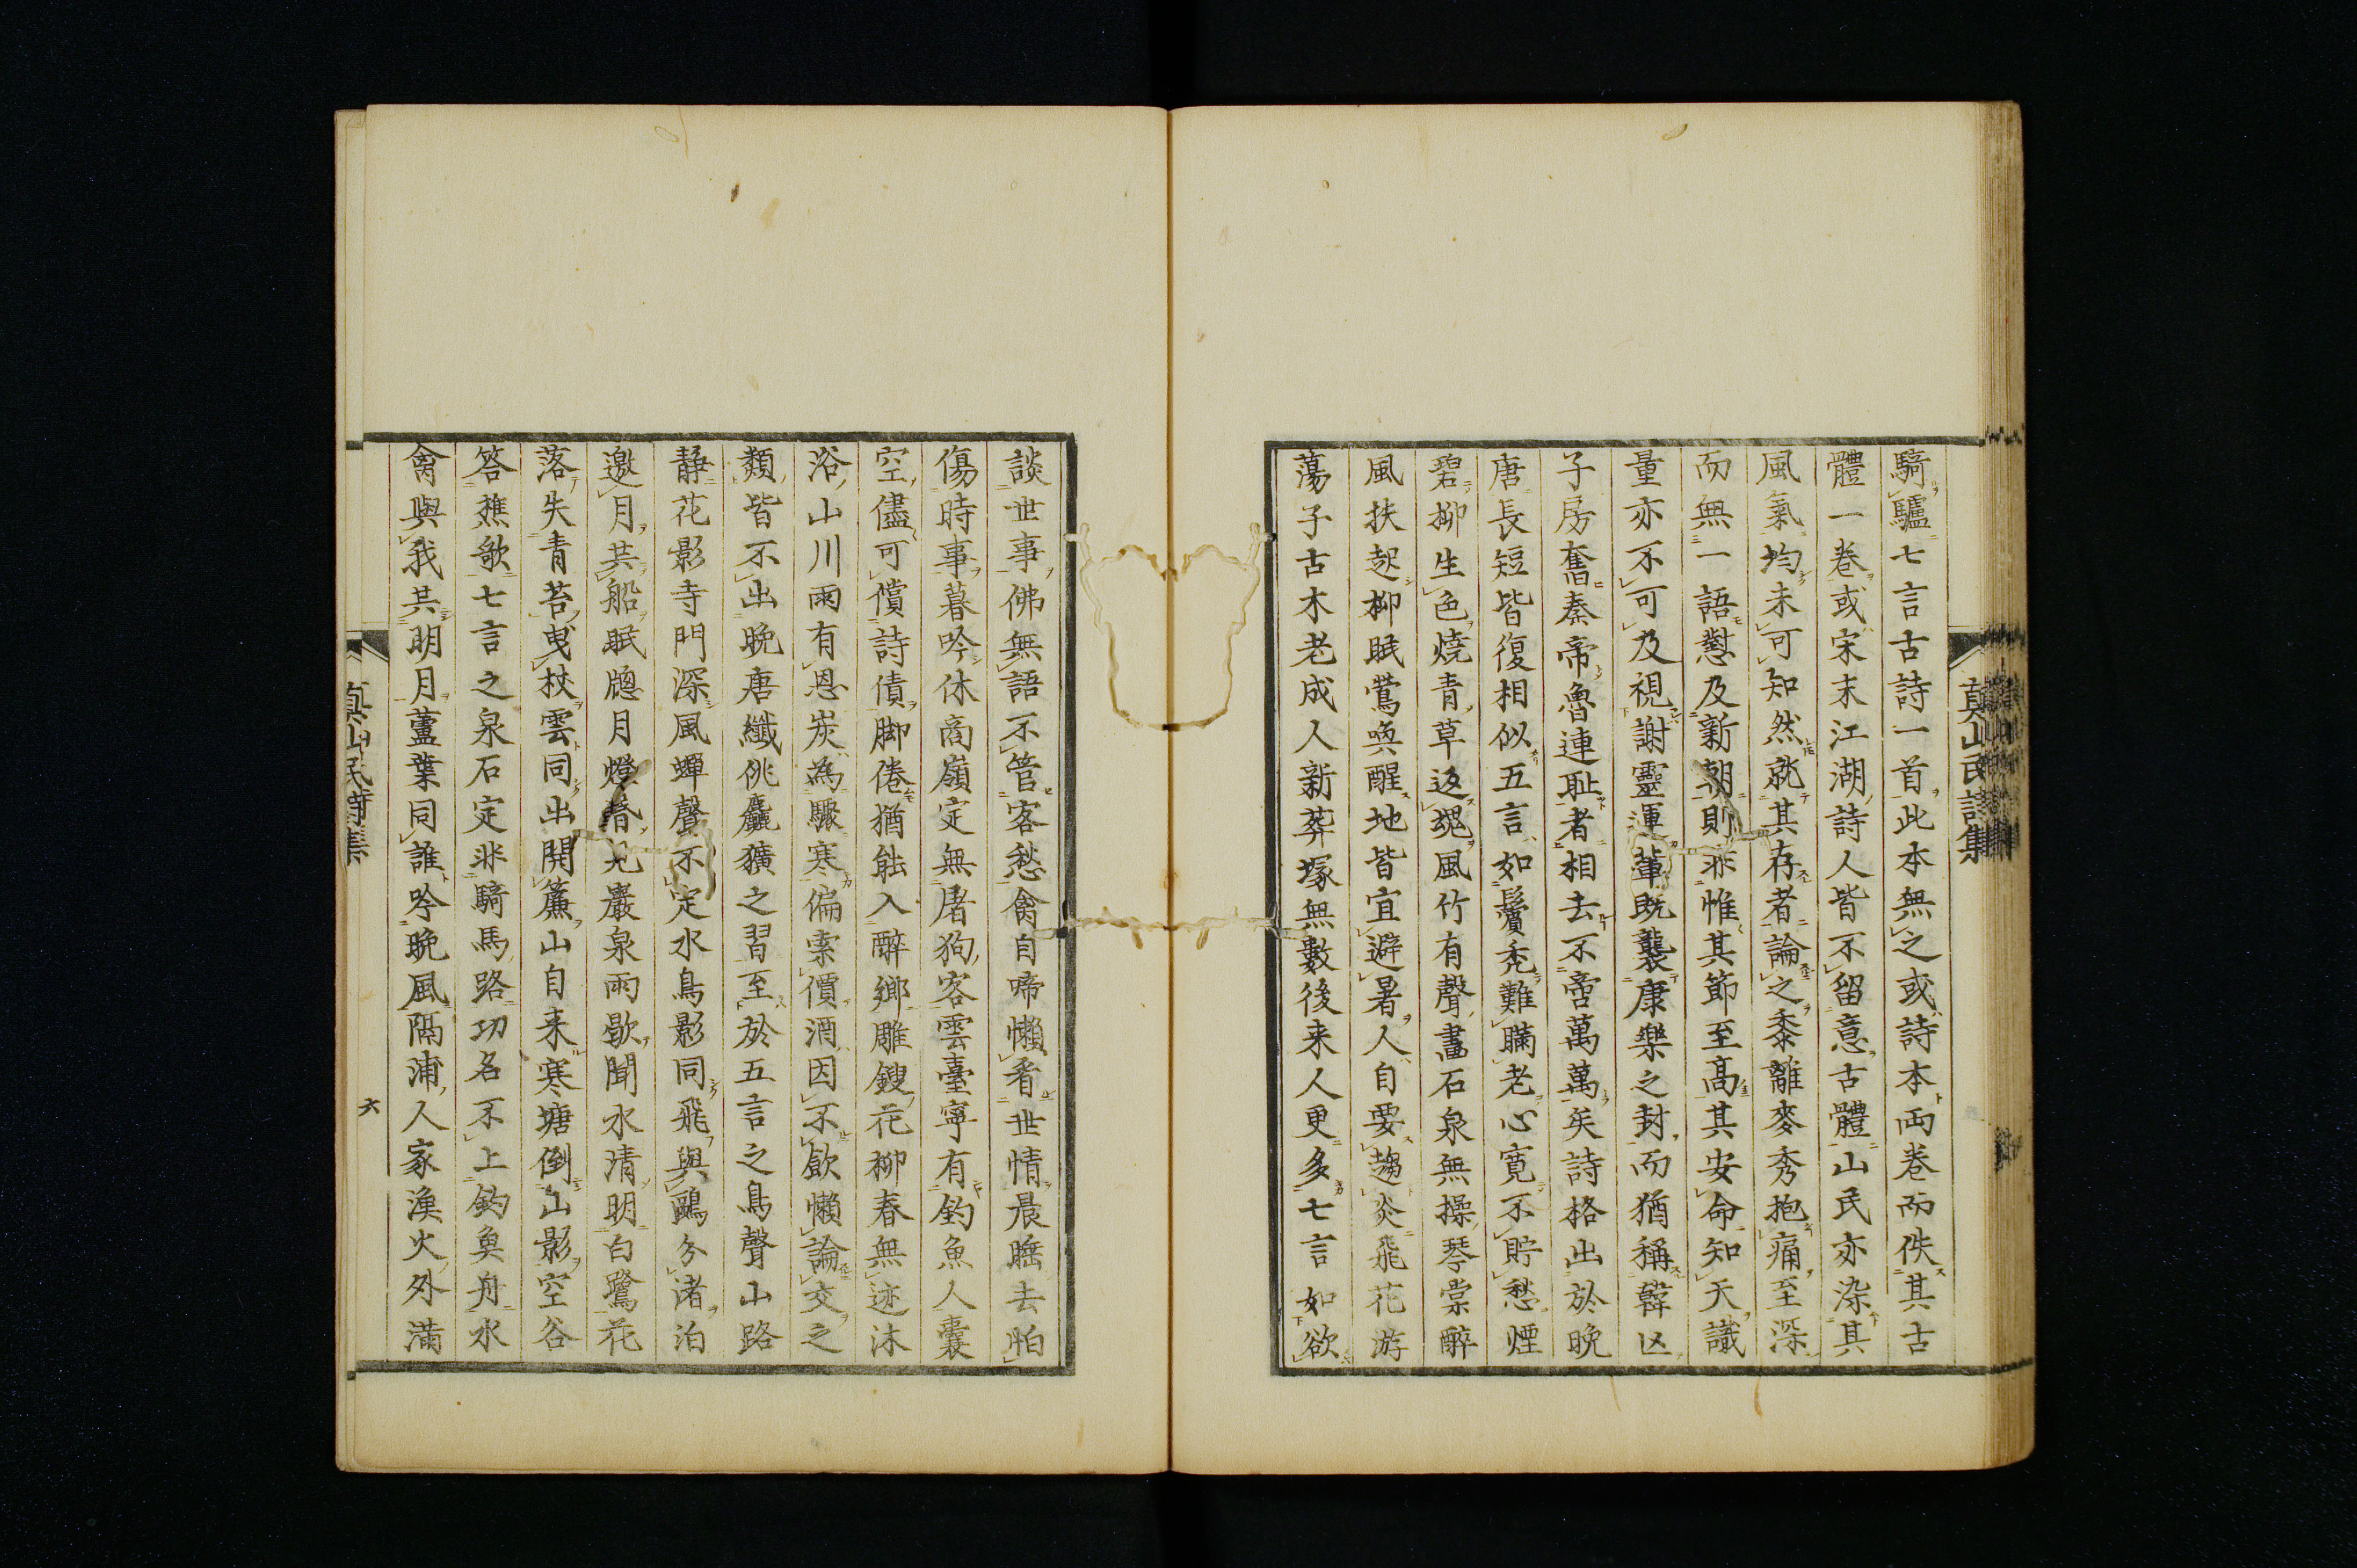 真山民詩集
騎驢七言古詩一首此本無之或詩本両卷而佚其古
體一卷或宋末江湖詩人皆不留意古體山民亦染其
風氣均未可知然就其存者論之黍離麥秀抱痛至深
而無一語懟及新朝則非惟其節至高其安命知天識
量亦不可及視謝靈運輩既襲康樂之封而猶稱韓亡
子房奮秦帝魯連耻者相去不啻萬萬矣詩格出於晩
唐長短皆復相似五言如鬢禿難瞞老心寛不貯愁煙
碧柳生色燒青草返魂風竹有聲畫石泉無操琴棠醉
風扶起柳眠鶯喚醒地皆宜避暑人自要趨炎飛花游
蕩子古木老成人新葬塚無數後来人更多七言如欲
談世事佛無語不管客愁禽自啼懶看世情晨睡去怕
傷時事暮吟休商嶺定無屠狗客雲臺寧有釣魚人囊
空儘可償詩債脚倦猶能入醉鄉雕鎪花柳春無迹沐
浴山川雨有恩炭為驟寒偏索價酒因不飮懶論交之
類皆不出晩唐纖佻麤獷之習至於五言之鳥聲山路
靜花影寺門深風蟬聲不定水鳥影同飛與鷗分渚泊
邀月共船眠牕月燈昏見巖泉雨歇聞水清明白鷺花
落失青苔曳杖雲同出開簾山自来寒塘倒山影空谷
答樵歌七言之泉石定非騎馬路功名不上釣魚舟水
禽與我共明月蘆葉同誰吟晩風隔浦人家漁火外滿
真山民詩集
六